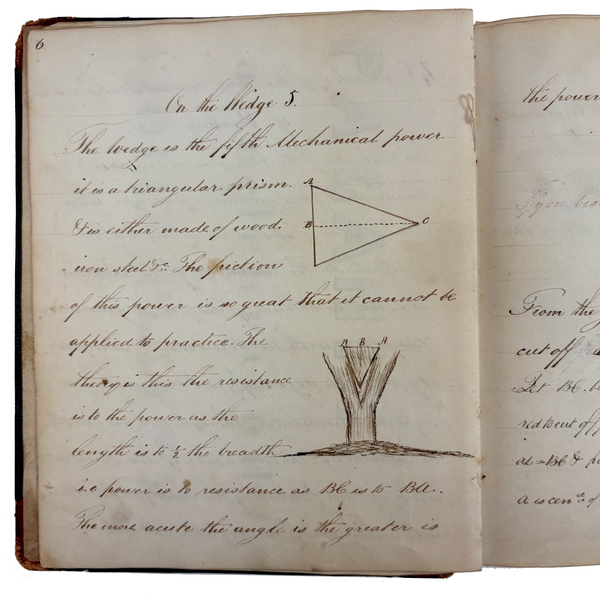 6
On the Wedge 5.
The wedge is the fifth Mechanical power
it is a triangular prism.
& is either made of wood.
iron steel &c. The friction
of this power is so great that it cannot be
applied to practice. The
theory is this the resistance
is to the power as the
length is to ½ the breadth
i.e power is to resistance as BC is to BA.
The more acute the angle is the greater is
A
B
C
A B A
the power
From the
cut off
Let BC
red to cut off
at = BC &
a is cen